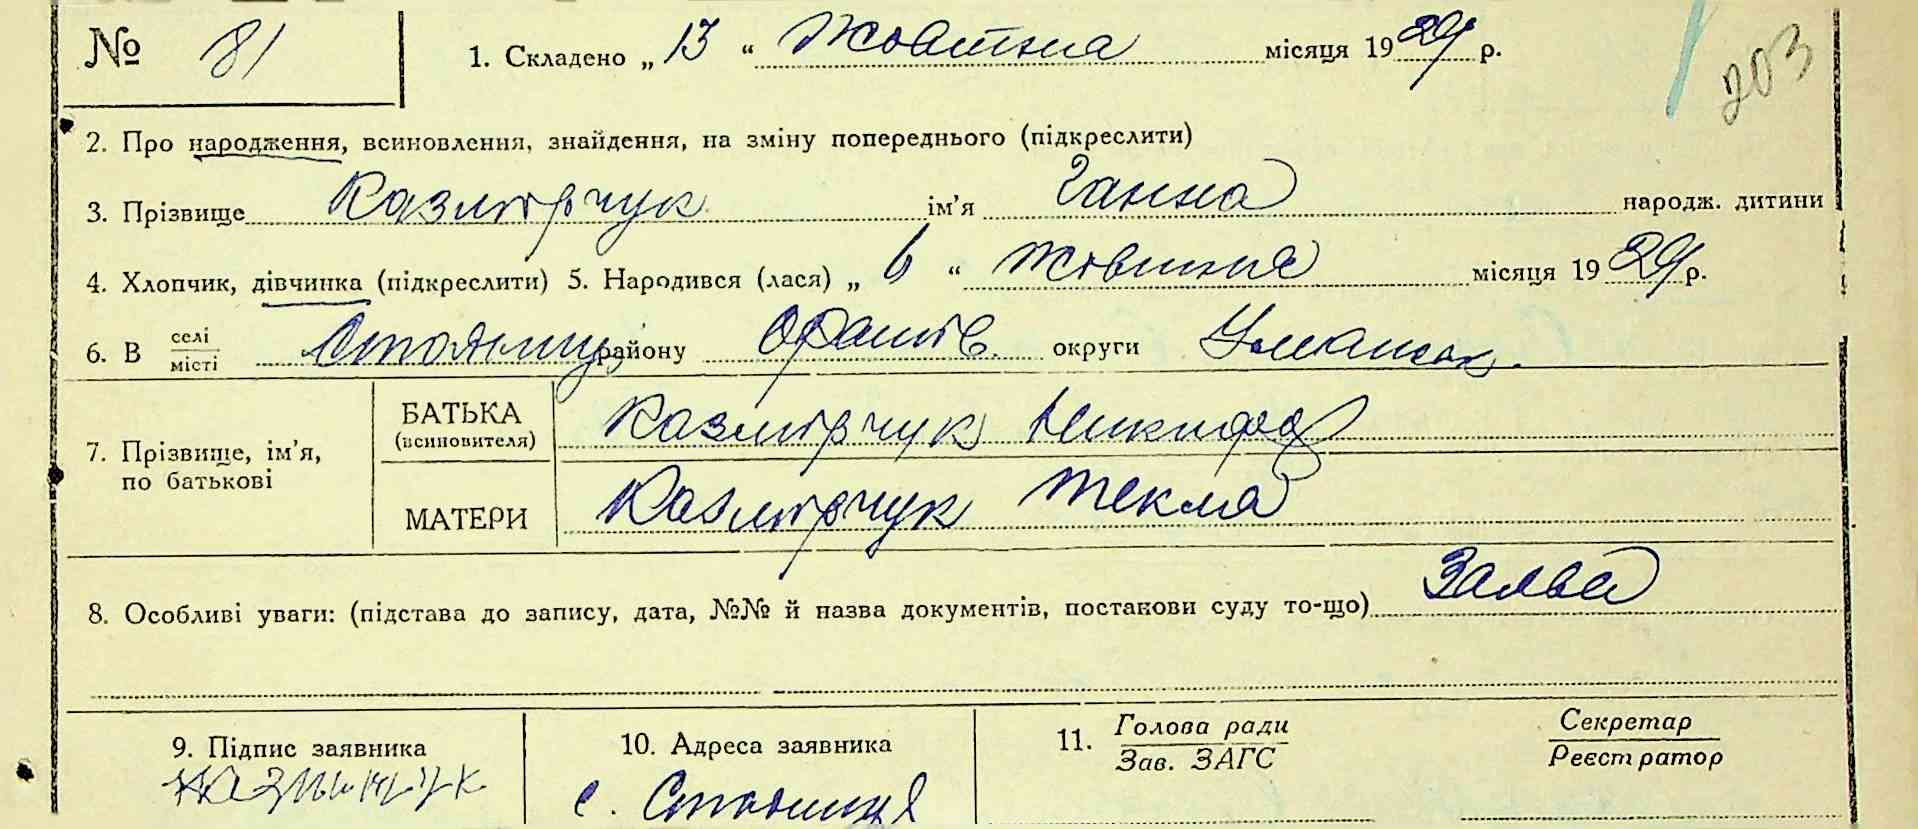 № 81
1. Складено „ 13 “ Жовтня місяця 1929 р.
203
2. Про народження, всиновлення, знайдення, на зміну попереднього (підкреслити)
3. Прізвище Казмірчук ім'я Ганна народж. дитини
4. Хлопчик, дівчинка (підкреслити) 5. Народився (лася) „ 6 “ Жовтня місяця 1929 р.
6. В селі/місті району Оратів. округи Уманськ.
7. Прізвище, ім'я, по батькові
БАТЬКА (всиновителя) Казмірчук Никифор
МАТЕРИ Казмірчук Текля
8. Особливі уваги: (підстава до запису, дата, №№ й назва документів, постанови суду то-що) Заява
9. Підпис заявника
10. Адреса заявника
11. Голова ради / Зав. ЗАГС
Секретар / Реєстратор
с.